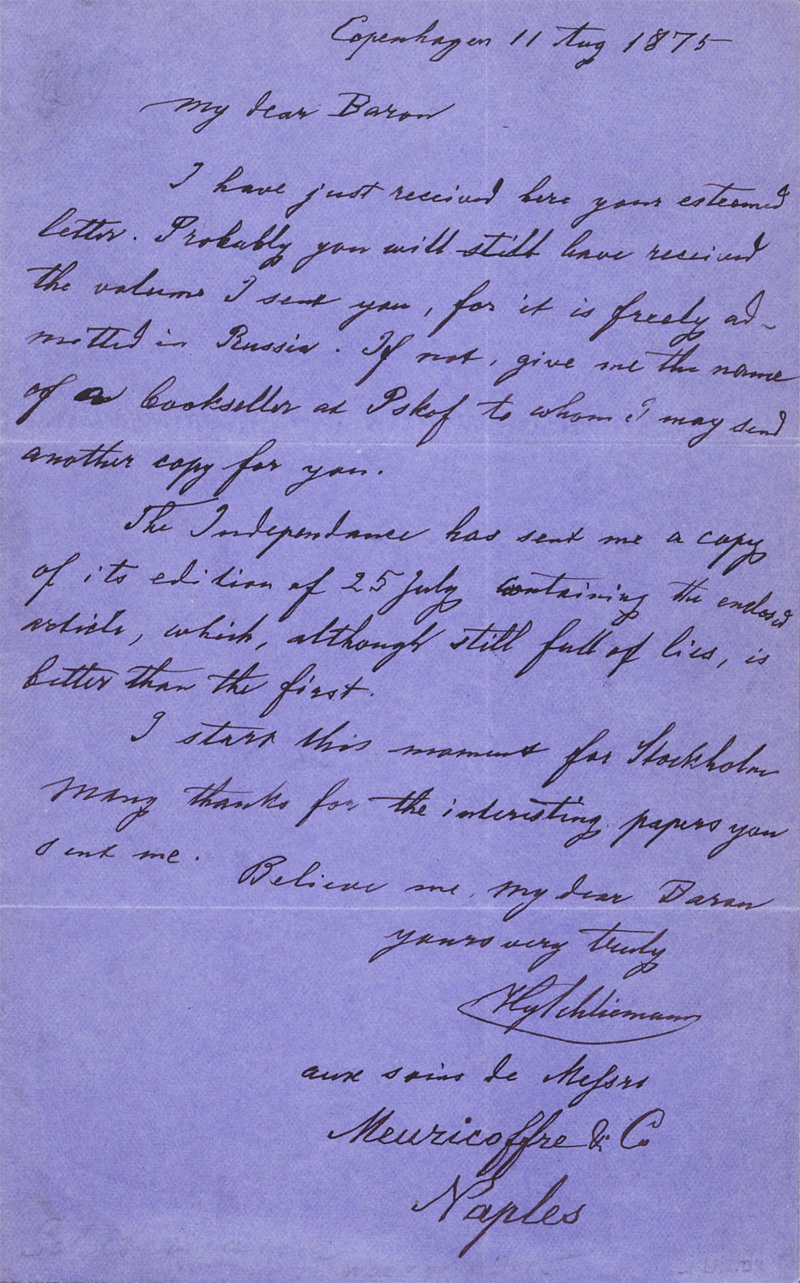 Copenhagen 11 Aug 1875
My dear Baron
I have just received here your esteemed
letter. Probably you will still have received
the volume I sent you, for it is freely ad-
mitted in Russia. If not, give me the name
of a bookseller at Pskof to whom I may send
another copy for you.
The Independance has sent me a copy
of its edition of 25 July containing the enclosed
article, which, although still full of lies, is
better than the first.
I start this moment for Stockholm
Many thanks for the interesting papers you
sent me.
Believe me, my dear Baron
yours very truly
Hy Schliemann
aux soins de Messrs
Meuricoffre & Co
Naples